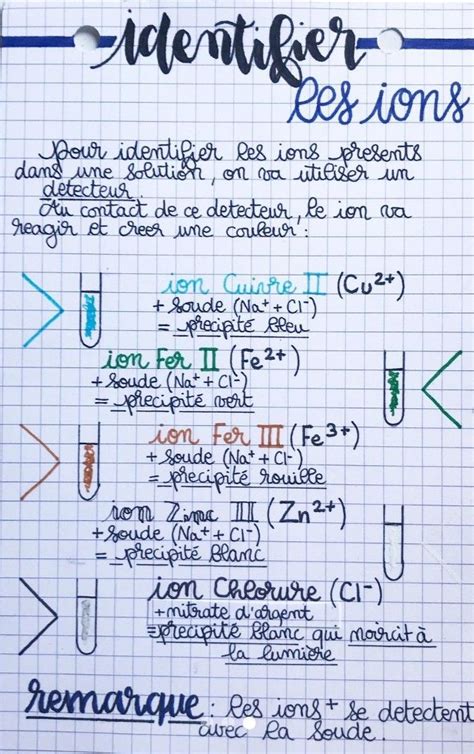 identifier
les ions
pour identifier les ions presents
dans une solution, on va utiliser un
detecteur.
Au contact de ce detecteur, le ion va
reagir et creer une couleur :
ion Cuivre II (Cu²⁺)
+ soude (Na⁺ + Cl⁻)
= precipité bleu
ion Fer II (Fe²⁺)
+ soude (Na⁺ + Cl⁻)
= precipité vert
ion Fer III (Fe³⁺)
+ soude (Na⁺ + Cl⁻)
= precipité rouille
ion Zinc III (Zn²⁺)
+ soude (Na⁺ + Cl⁻)
= precipité blanc
ion Chlorure (Cl⁻)
+ nitrate d'argent
= precipité blanc qui noircit à
la lumière
remarque : les ions + se detectent
avec la soude.